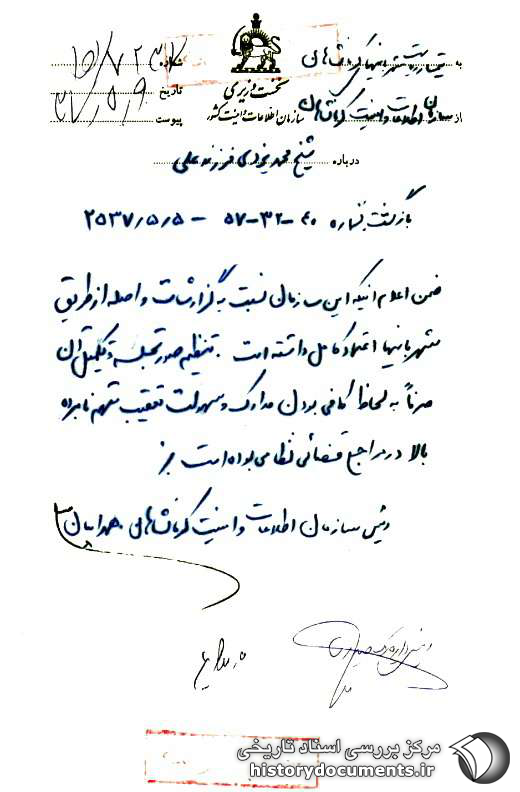 به ریاست شهربانیهای کرمانشاهان
نخست وزیری
سازمان اطلاعات و امنیت کشور
شماره
تاریخ ۳۷/۵/۹
پیوست
از سازمان اطلاعات و امنیت کرمانشاهان
درباره شیخ محمد یزدی فرزند علی
بازگشت بشماره ۴۰-۳۲-۵۷ - ۲۵۳۷/۵/۵
ضمن اعلام اینکه این سازمان نسبت به گزارشات واصله از طریق
شهربانیها اعتماد کامل داشته است. تنظیم صورتجلسه و تکمیل آن
صرفاً به لحاظ کافی بودن مدارک و سهولت تعقیب متهم نامبرده
بالا در مراجع قضائی نظامی بوده است
رئیس سازمان اطلاعات و امنیت کرمانشاهان
مرکز بررسی اسناد تاریخی
historydocuments.ir